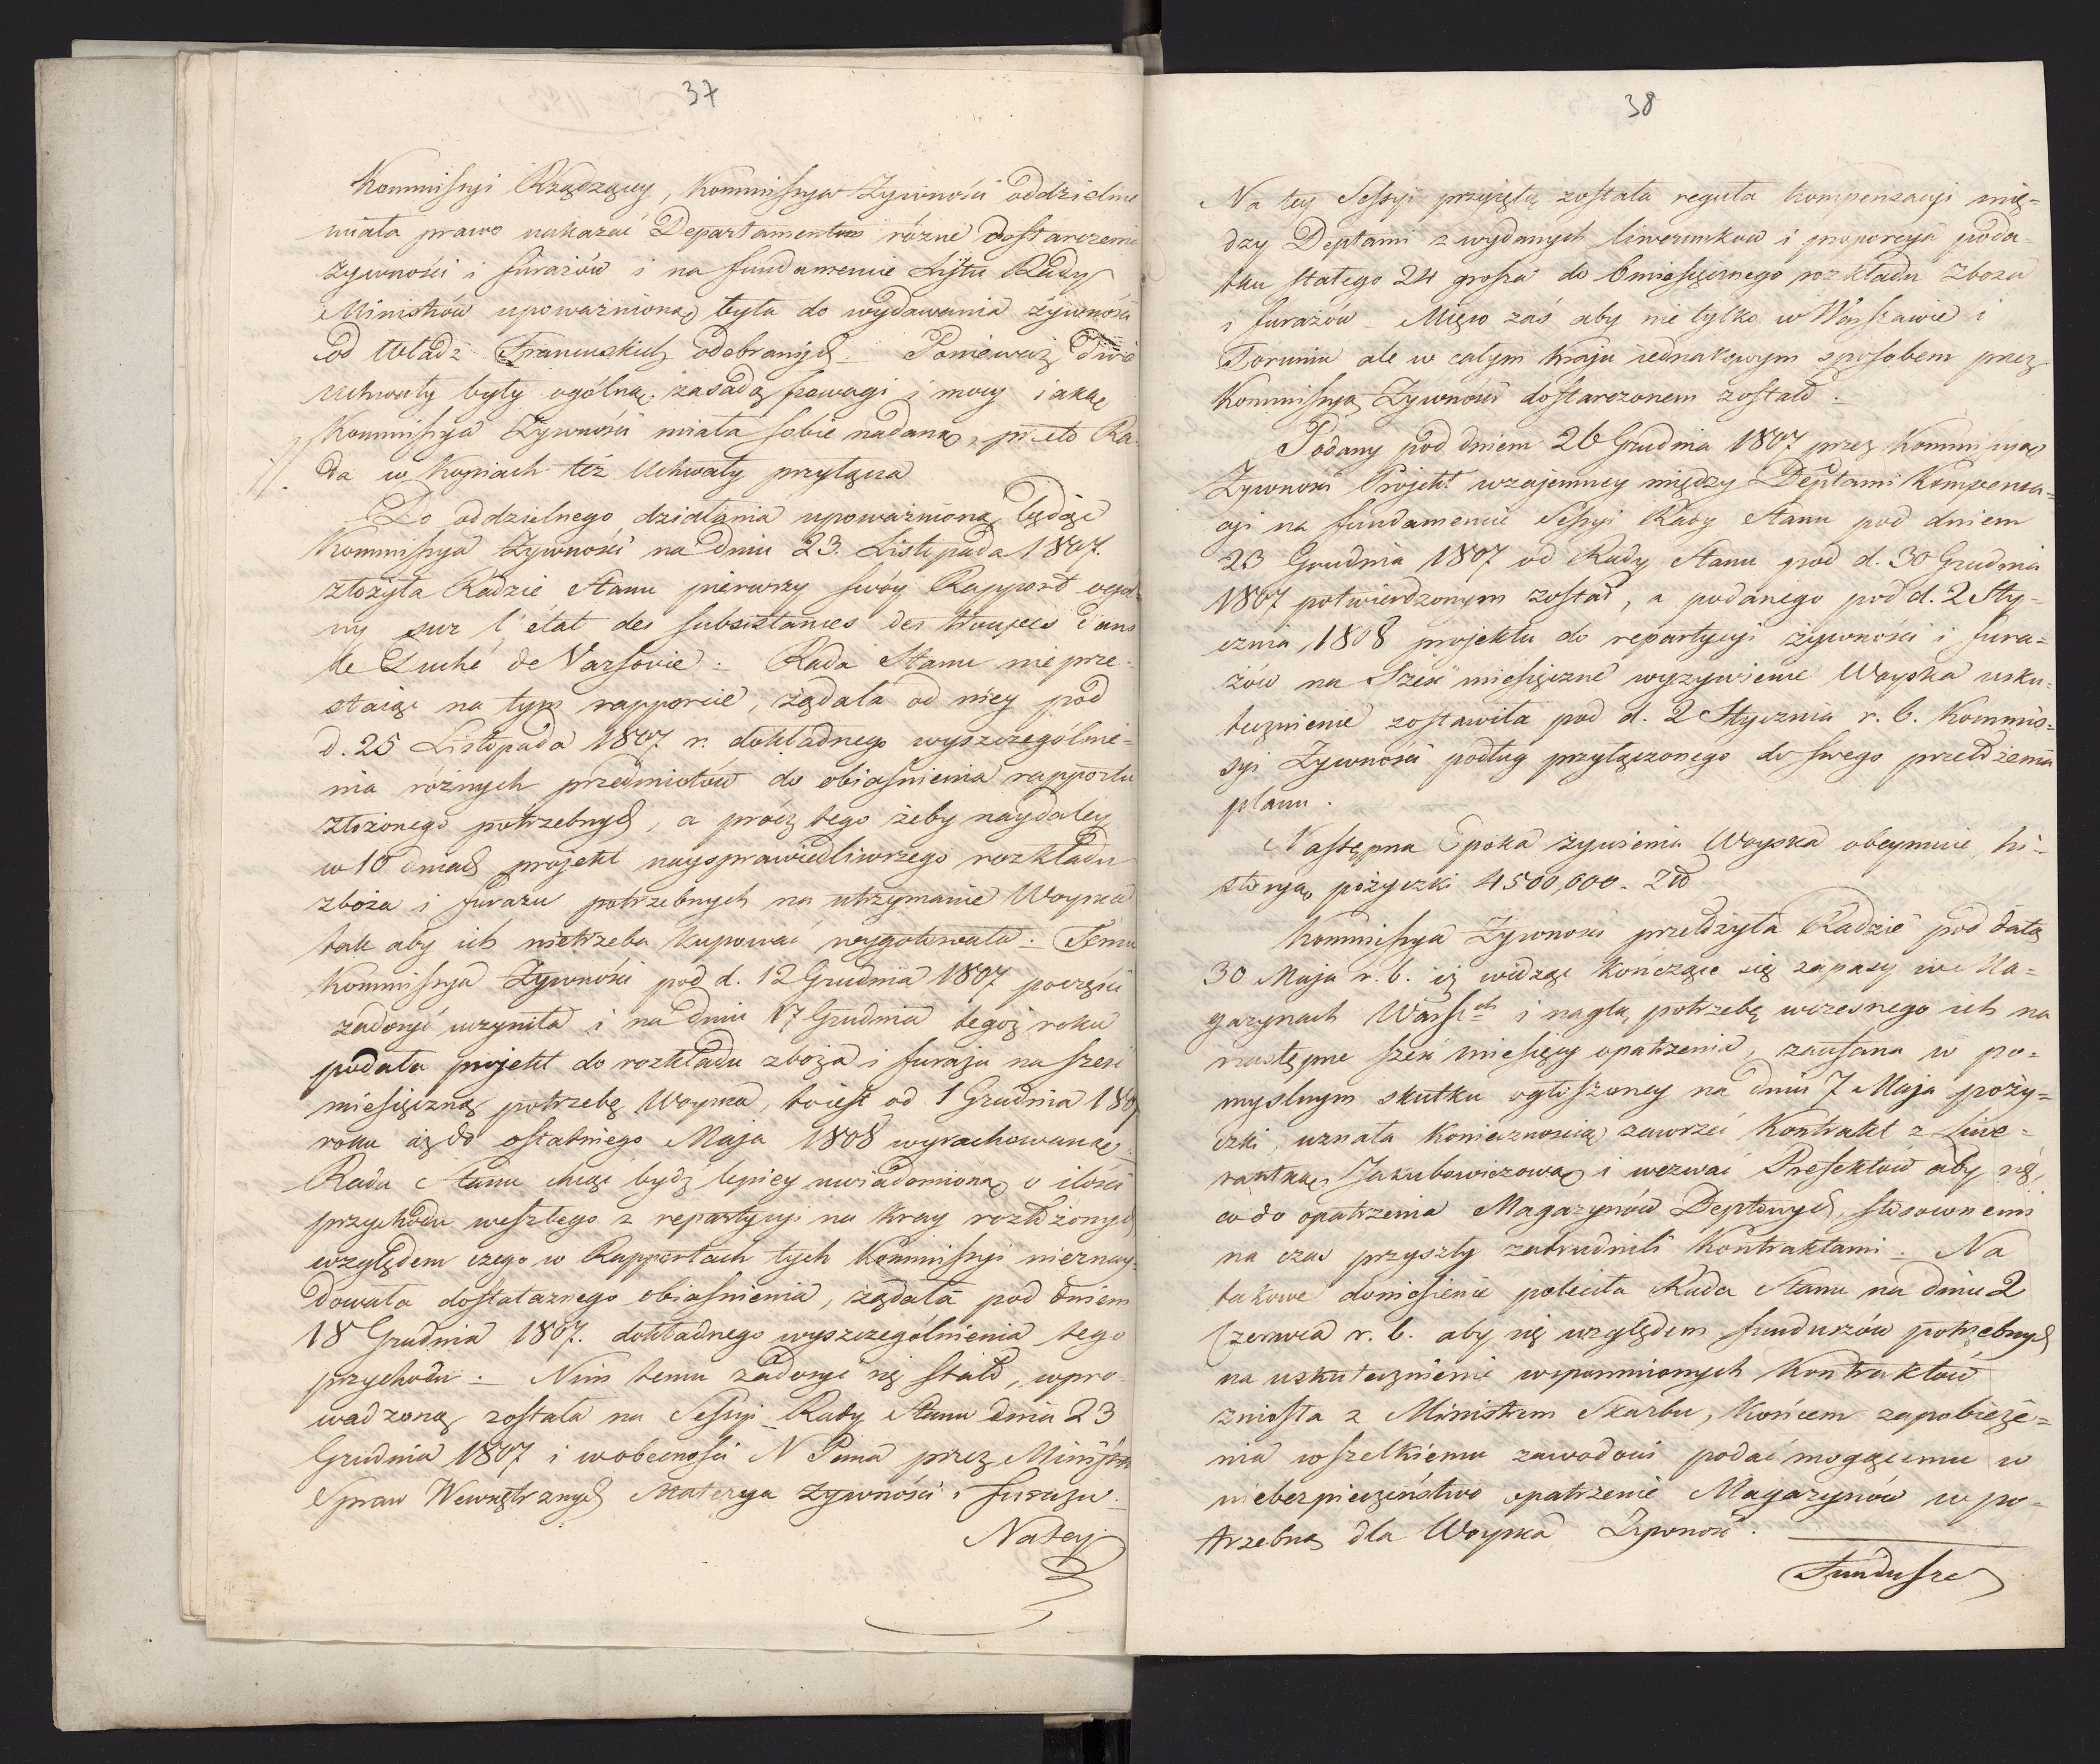 37
Kommissyi Rządzącey, Kommissya Żywności oddzielnie
miała prawo nakazać Departamentom różne dostarczenia
żywności i furażów i na fundamencie Listu Rady
Ministrów upoważnioną była do wydawania żywności
od Władz Francuskich odebranych. Ponieważ dwie
Uchwały były ogólną zasadą powagi i mocy iaką
Kommissya Żywności miała sobie nadaną, przeto Ra-
da w Kopiach też Uchwały przyłącza
Do oddzielnego działania upoważnioną będąc
Kommissya Żywności na dniu 23. Listopada 1807.
złożyła Radzie Stanu pierwszy swóy Rapport ogól-
ny sur l'état des subsistances des troupes dans
le Duché de Varsovie. Rada Stanu nie prze-
staiąc na tym rapporcie, żądała od niey pod
d. 25 Listopada 1807 r. dokładnego wyszczególnie-
nia różnych przedmiotów do obiaśnienia rapportu
złożonego potrzebnych, a prócz tego żeby naydaley
w 10 dniach projekt naysprawiedliwszego rozkładu
zboża i furażu potrzebnych na utrzymanie Woyska
tak aby ich nietrzeba kupować wygotowała. Temu
Kommissya Żywności pod d. 12 Grudnia 1807 poczęści
zadosyć uczyniła i na dniu 17 Grudnia tegoż roku
podała projekt do rozkładu zboża i furażu na sześć
miesięczną potrzebę Woyska, toiest od 1 Grudnia 1807
roku aż do ostatniego Maja 1808 wyrachowaną.
Rada Stanu chcąc bydź lepiey uwiadomioną o ilości
przychodu weszłego z repartycyi na Kray rozłożonych
względem czego w Rapportach tych Kommissyi nieznay-
dowała dostatecznego obiaśnienia, żądała pod dniem
18 Grudnia 1807. dokładnego wyszczególnienia tego
przychodu. Nim temu zadosyć się stało, wpro-
wadzoną została na Sessyi Rady Stanu dnia 23
Grudnia 1807 i w obecności N Pana przez Ministra
Spraw Wewnętrznych Materya żywności i furażu.
Na tey
38
Na tey Sessyi przyjętą została reguła kompensacyi mię-
dzy Deptami z wydanych liwerunków i proporcyą poda-
tku stałego 24 grosza do 6 miesięcznego rozkładu zboża
i furażów. Mięso zaś aby nie tylko w Warszawie i
Toruniu ale w całym kraju iednakowym sposobem przez
Kommissyą Żywności dostarczonem zostało.
Podany pod dniem 26 Grudnia 1807 przez Kommissyą
Żywności Projekt wzajemney między Deptami Kompensa-
cyi na fundamencie Sessyi Rady Stanu pod dniem
23 Grudnia 1807 od Rady Stanu pod d. 30 Grudnia
1807 potwierdzonym został, a podanego pod d. 2 Sty-
cznia 1808 projektu do repartycyi żywności i fura-
żów na Sześć miesięczne wyżywienie Woyska usku-
tecznienie zostawiła pod d. 2 Stycznia r. b. Kommis-
syi Żywności podług przyłączonego do swego przełożenia
planu.
Następna Epoka żywienia Woyska obeymuie hi-
storyą pożyczki 4500,000. Złł
Kommissya Żywności przełożyła Radzie pod datą
30 Maja r. b. iż widząc kończące się zapasy w Ma-
gazynach Warsch i nagłą potrzebę wczesnego ich na
następne sześć miesięcy opatrzenia, zaufana w po-
myslnym skutku ogłoszoney na dniu 7 Maja poży-
czki, uznała koniecznością zawrzeć Kontrakt z Liwe-
rantką Jakubowiczową i wezwać Prefektów aby się,
co do opatrzenia Magazynów Deptowych, stosownemi
na czas przyszły zatrudnili Kontraktami. Na
takowe doniesienie poleciła Rada Stanu na dniu 2
Czerwca r. b. aby się względem funduszów potrzebnych
na uskutecznienie wspomnionych Kontraktów
zniosła z Ministrem Skarbu, końcem zapobieże-
nia wszelkiemu zawodowi podać mogącemu w
niebezpieczeństwo opatrzenie Magazynów w po-
trzebną dla Woyska Żywność.
Fundusze